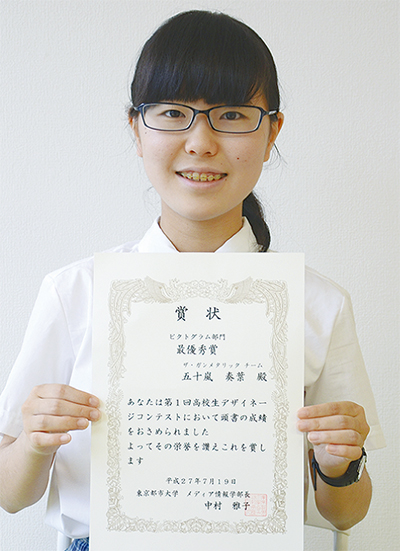 賞状
ピクトグラム部門
最優秀賞
ザ・ガンメタリック チーム
五十嵐 奏葉 殿
あなたは第1回高校生デザイネー
ジコンテストにおいて頭書の成績
をおさめられました
よってその栄誉を讃えこれを賞し
ます
平成27年7月19日
東京都市大学 メディア情報学部長
中村 雅子